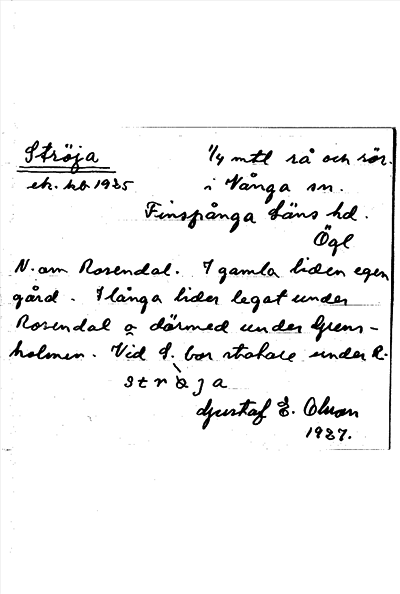 Ströja 1/4 mtl rå och rör.
ek. kb 1925 i Vånga sn.
Finspånga läns hd.
Ögl
N. om Rosendal. I gamla tider egen
gård. I långa tider legat under
Rosendal o därmed under Grens-
holmen. Vid S. bor statare under R.
strö̀ja
Gustaf E. Olson
1927.